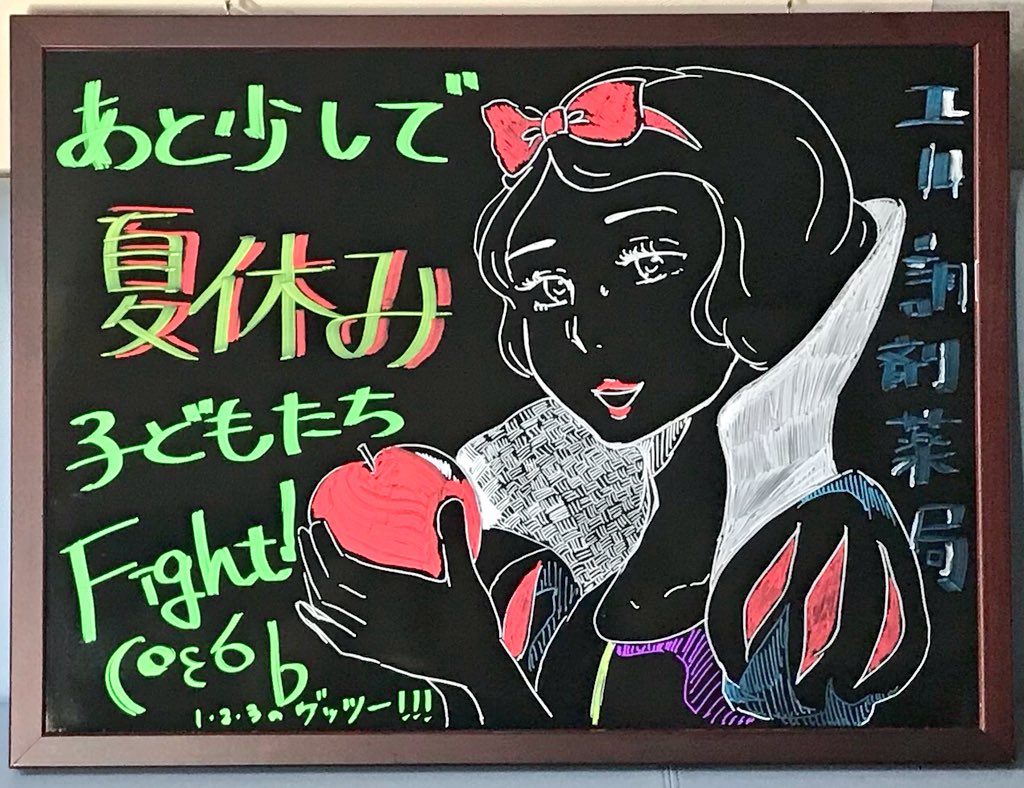 あと少しで
夏休み
子どもたち
Fight!
1.2.3のゲッツー!!!
調剤薬局